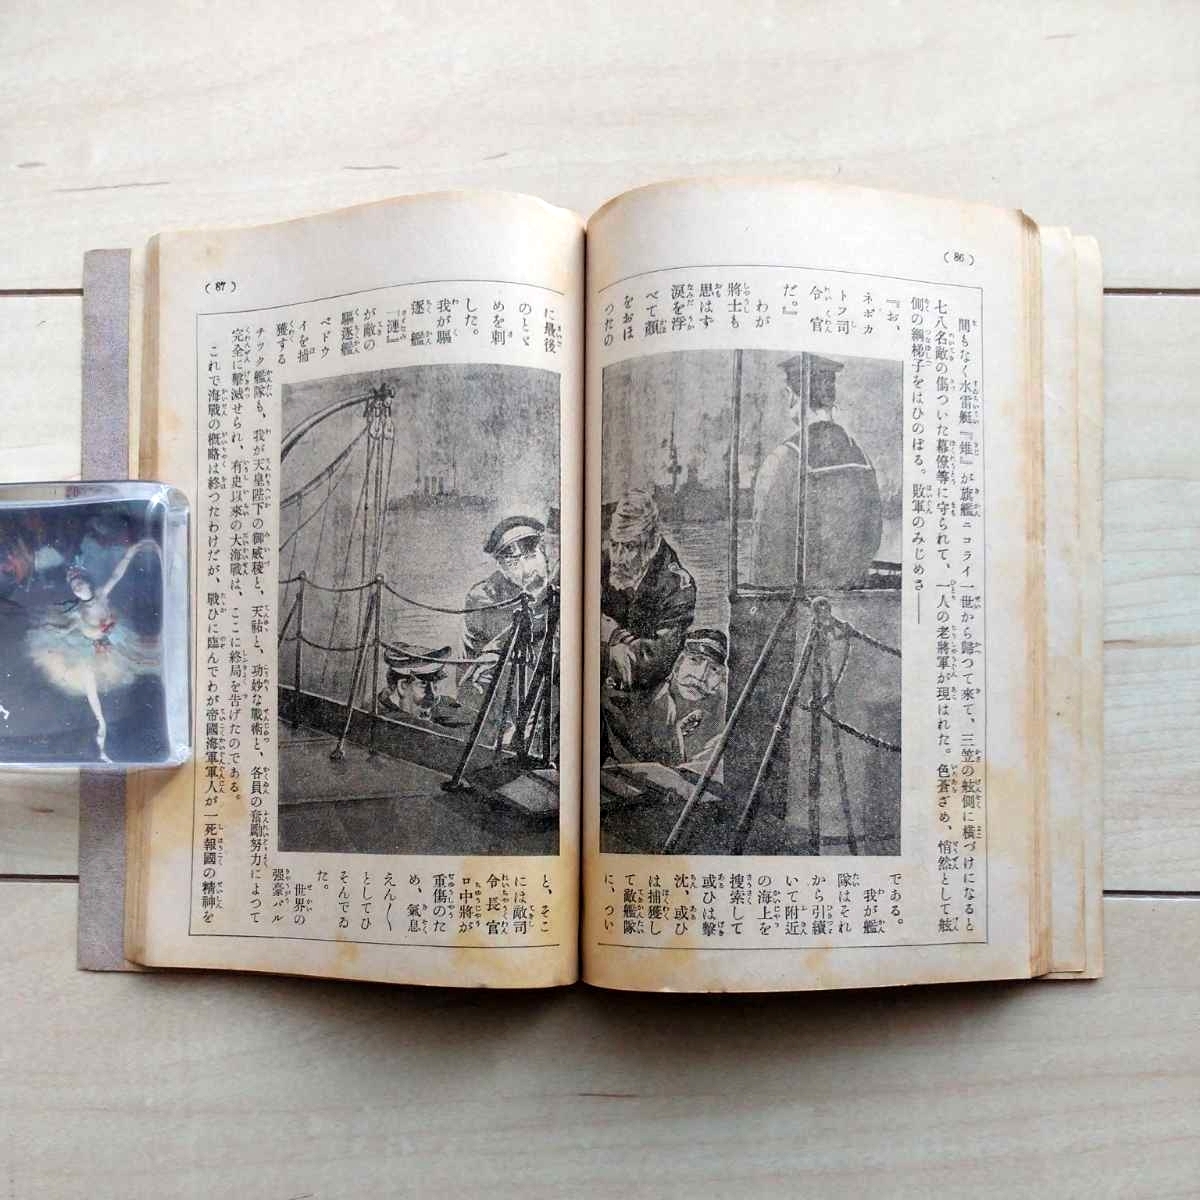 ( 86 )
間もなく水雷艇『雉』が旗艦ニコライ一世から歸つて來て、三笠の舷側に横づけになると
七八名敵の傷ついた幕僚等に守られて、一人の老將軍が現はれた。色蒼ざめ、悄然として舷
側の綱梯子をはひのぼる。敗軍のみじめさ――
『お、
ネボカ
トフ司
令官
だ。』
わが
將士も
思はず
涙を浮
べて顔
をおほ
つたの
である。
我が艦
隊はそれ
から引續
いて附近
の海上を
搜索して
或ひは擊
沈、或ひ
は捕獲し
て敵艦隊
に、つい
( 87 )
に最後
のとゞ
めを刺
した。
我が驅
逐艦
『漣』
が敵の
驅逐艦
ベドウ
イを捕
獲する
と、そこ
には敵司
令長官
ロ中將が
重傷のた
め、氣息
えん〱
としてひ
そんでゐ
た。
世界の
强豪バル
チック艦隊も、我が天皇陛下の御威稜と、天祐と、功妙な戰術と、各員の奮勵努力によつて
完全に擊滅せられ、有史以來の大海戰は、ここに終局を告げたのである。
これで海戰の概略は終つたわけだが、戰ひに臨んでわが帝國海軍軍人が一死報國の精神を